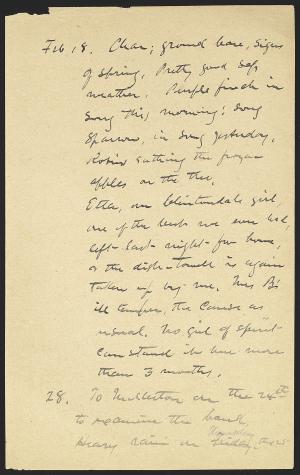 Feb 18. Clear; ground bare, signs
of spring. Pretty good sap
weather. Purple finch in
song this morning; song
sparrow, in song yesterday.
Robin eating the frozen
apples on the tree.
Etta, our Clintondale girl,
one of the best we ever had,
left last night for home,
or the dish-towell is again
taken up by me. Mrs B's
ill temper, the cause as
usual. No girl of spirit
can stand it here more
than 3 months.
28. To Middleton on the 24th
to examine the bank,
Heavy rain on Thursday the 25